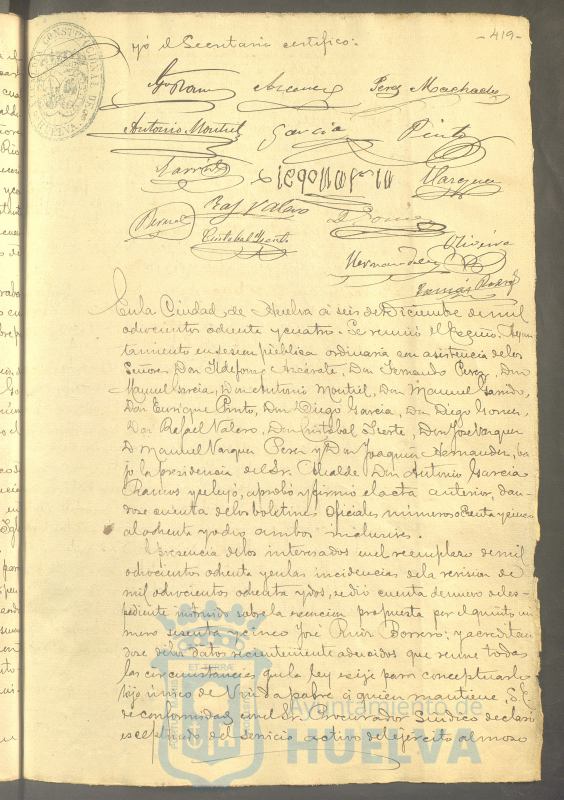 -419-
yó el Secretario certifico:
Garcia Pinto
Antonio Montiel
Perez Machado
Vazquez
Bernal Raf Valero D. Gomez
Cristobal Huerto
Oliveira
Hernandez
Tomás
En la Ciudad de Huelva á seis de Diciembre de mil
ochocientos ochenta y cuatro. Se reunió el Excmo. Ayun
tamiento en sesion pública ordinaria con asistencia de los
Señores Don Ildefonso Azcárate, Don Fernando Perez, Don
Manuel Garcia, Don Antonio Montiel, Don Manuel Garrido,
Don Enrique Pinto, Don Diego Garcia, Don Diego Gomez,
Don Rafael Valero, Don Cristobal Don José Vazquez
D. Manuel Vazquez Perez y Don Joaquin Hernandez, ba
jo la presidencia del Sr. Alcalde Don Antonio Garcia
Ramos y se leyó, aprobó y firmó el acta anterior, dan
dose cuenta de los boletines oficiales números
al ochenta y ocho ambos inclusives.
A presencia de los interesados en el reemplazo de mil
ochocientos ochenta y en las incidencias de la revision de
mil ochocientos ochenta y dos, se dió cuenta de nuevo del es-
pediente instruido sobre la esencion propuesta por el quinto nú
mero sesenta y cinco José Ruiz Borrero; y acreditan
dose de los datos recientemente aducidos que reune todas
las circunstancias que la ley exije para conceptuarlo
hijo único de Viuda pobre á quien mantiene, S. E.
de conformidad con el Sr. Procurador Síndico declaró
esceptuado del servicio activo del ejército al mozo
Ayuntamiento de
HUELVA